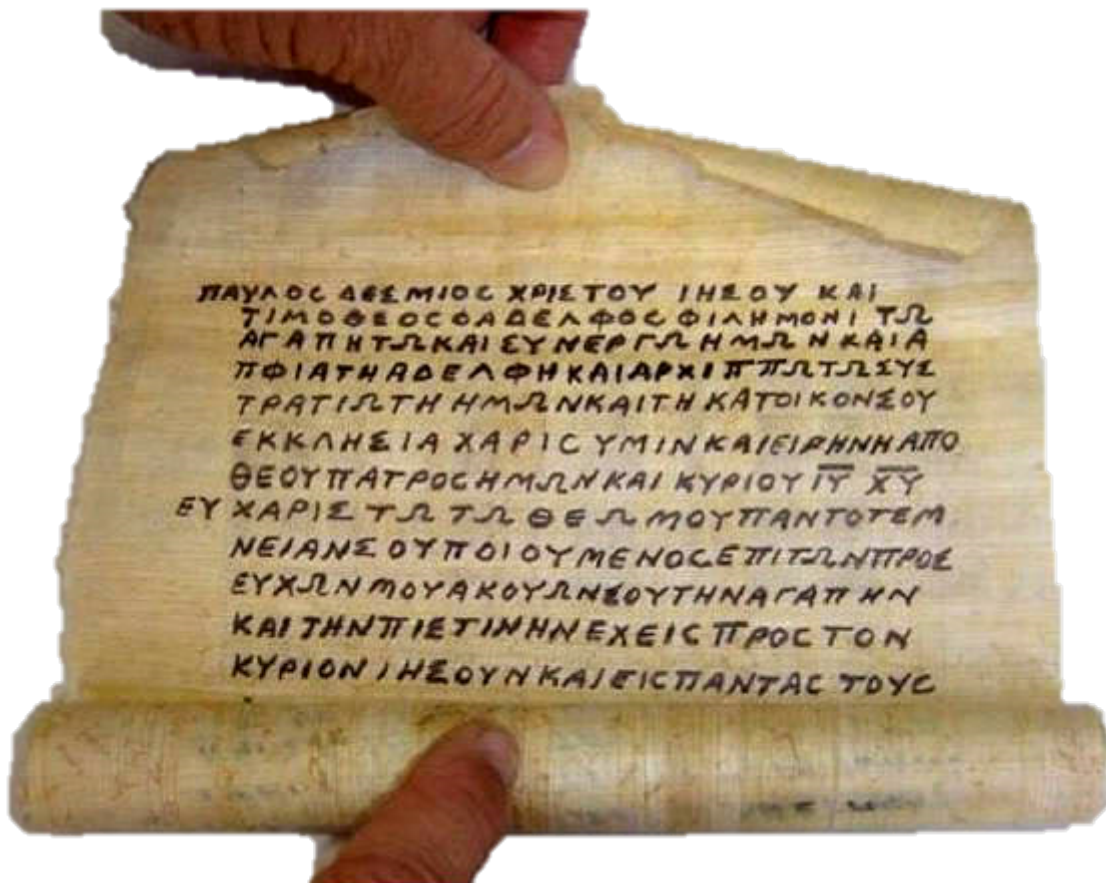 ΠΑΥΛΟϹ ΔΕΣΜΙΟϹ ΧΡΙΣΤΟΥ ΙΗΣΟΥ ΚΑΙ
ΤΙΜΟΘΕΟϹΟΑΔΕΛΦΟϹ ΦΙΛΗΜΟΝΙ ΤΩ
ΑΓΑΠΗΤΩΚΑΙΣΥΝΕΡΓΩΗΜΩΝΚΑΙΑ
ΠΦΙΑΤΗΑΔΕΛΦΗΚΑΙΑΡΧΙΠΠΩΤΩΣΥΣ
ΤΡΑΤΙΩΤΗ ΗΜΩΝΚΑΙΤΗ ΚΑΤΟΙΚΟΝΣΟΥ
ΕΚΚΛΗΣΙΑ ΧΑΡΙϹ ΥΜΙΝΚΑΙΕΙΡΗΝΗΑΠΟ
ΘΕΟΥΠΑΤΡΟϹΗΜΩΝΚΑΙ ΚΥΡΙΟΥ Ι̅Υ̅ Χ̅Υ̅
ΕΥΧΑΡΙΣΤΩ ΤΩ ΘΕΩ ΜΟΥΠΑΝΤΟΤΕΜ
ΝΕΙΑΝΣΟΥΠΟΙΟΥΜΕΝΟϹΕΠΙΤΩΝΠΡΟΣ
ΕΥΧΩΝΜΟΥΑΚΟΥΩΝΣΟΥΤΗΝΑΓΑΠΗΝ
ΚΑΙΤΗΝΠΙΣΤΙΝΗΝΕΧΕΙϹ ΠΡΟϹ ΤΟΝ
ΚΥΡΙΟΝΙΗΣΟΥΝΚΑΙΕΙϹΠΑΝΤΑϹ ΤΟΥϹ